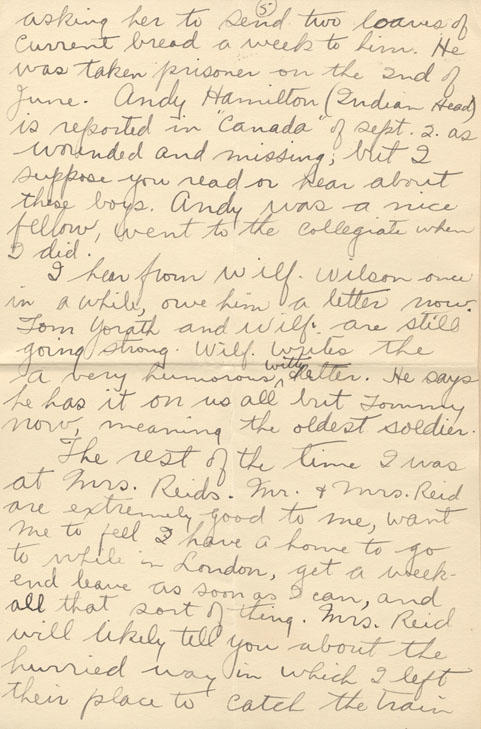 (5)
asking her to send two loaves of
Current bread a week to him. He
was taken prisoner on the 2nd of
June. Andy Hamilton (Indian Head)
is reported in "Canada" of sept. 2. as
wounded and missing, but I
suppose you read or hear about
these boys. Andy was a nice
fellow, went to the collegiate when
I did.
I hear from Wilf. Wilson once
in a while, owe him a letter now.
Tom Yorath and Wilf. are still
going strong. Wilf. writes the
a very humorous, witty letter. He says
he has it on us all but Tommy
now, meaning the oldest soldier.
The rest of the time I was
at Mrs. Reids. Mr. & Mrs. Reid
are extremely good to me, want
me to feel I have a home to go
to while in London, get a week-
end leave as soon as I can, and
all that sort of thing. Mrs. Reid
will likely tell you about the
hurried way in which I left
their place to catch the train